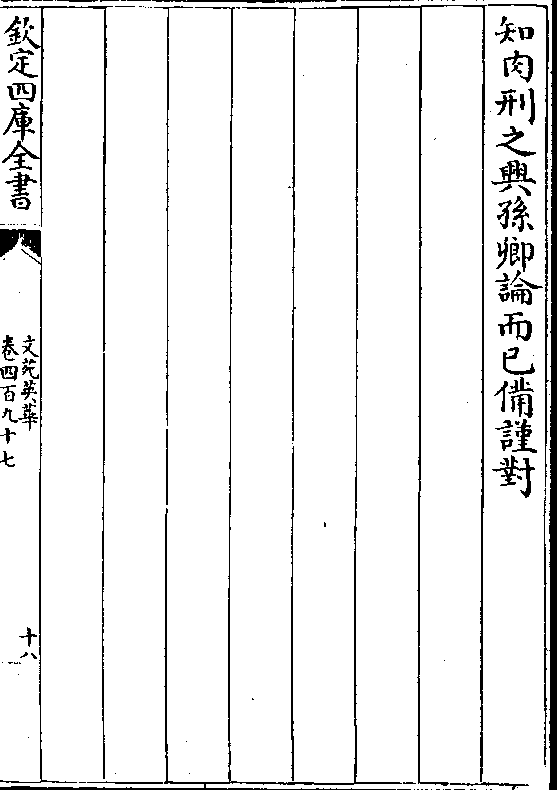 知肉刑之興孫卿論而已備謹對
欽定四庫全書
文苑英華
卷四百九十七
十八